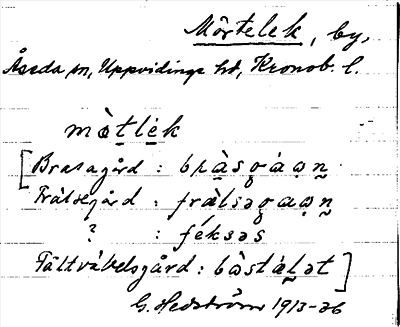 Mörtelek, by,
Åseda sn, Uppvidinge hd, Kronob. l.
mǜt̲lé̲k
[Brasagård : bràsgáan
Frälsegård : frǽlsəgáan
? : féksəs
Fältväbelsgård : bǜstáləṯ]
G. Hedström 1913-26